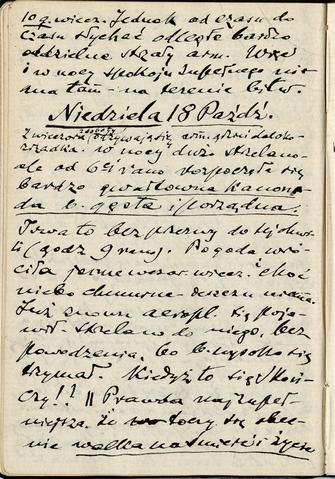 10 g. wiecz. Jednak od czasu do
czasu słychać odległe bardzo
oddzielne strzały arm. Więc
i w nocy spokoju zupełnego nie
ma tam - na terenie bitw.
Niedziela 18 Paźdź.
Z wieczora odzywają się arm. grzmi daleko
rzadka. W nocy dużo strzelano
ale od 6 g. rano rozpoczęła się
bardzo gwałtowna kanona-
da b. gęsta i porządna.
Trwa to bez przerwy do tej chwi-
li (godz 9 rano). Pogoda wró-
ciła jeszcze wczoraj wiecz. choć
niebo chmurne - deszczu niema.
Już znowu aeropl. się poja-
wił. Strzelano do niego, bez
powodzenia, bo b. wysoko się
trzymał. Kiedyż to się skoń-
czy!! Prawda najzupeł-
niejsza, że toczy się obec-
nie walka na śmierć i życie